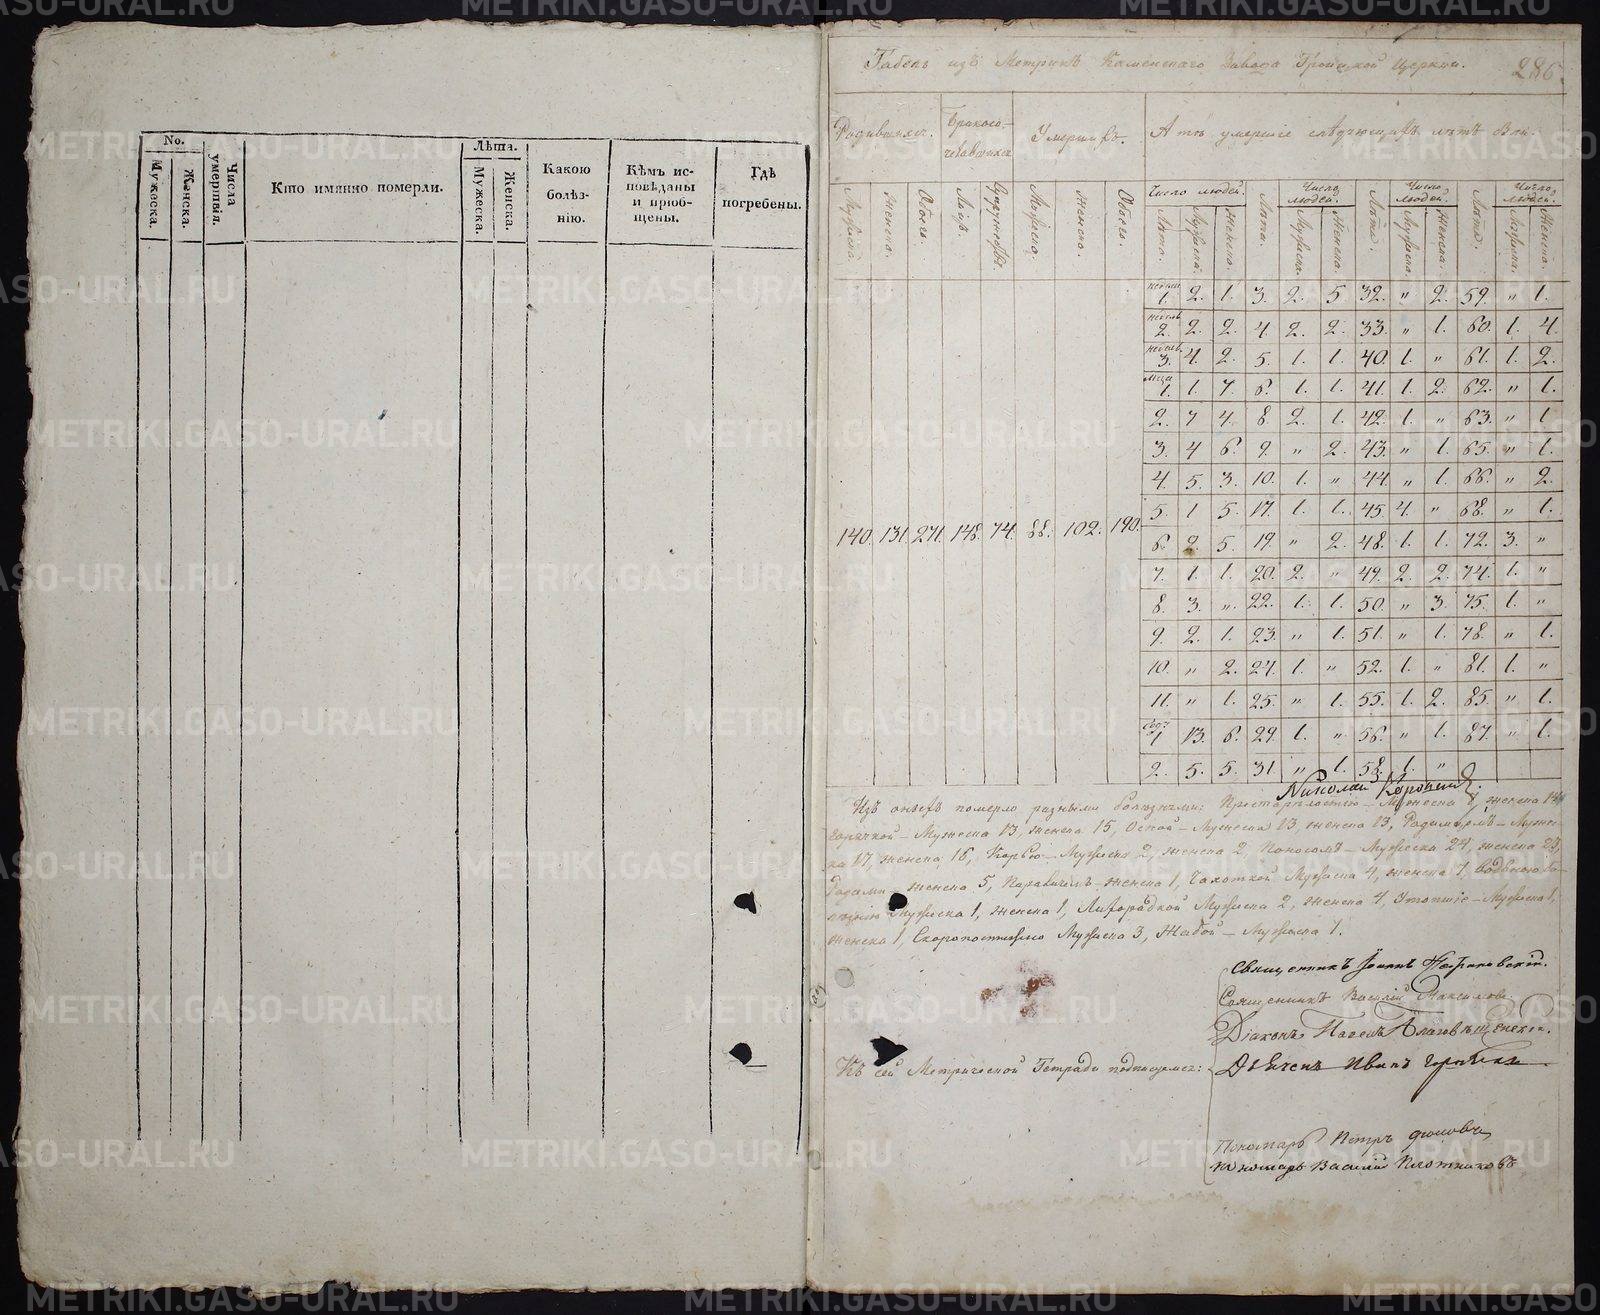 No.
Мужеска.
Женска.
Числа умертвїя.
Кто имянно померли.
Лѣта.
Мужеска.
Женска.
Какою болѣз-нїю.
Кѣмъ ис-повѣданы и прїоб-щены.
Гдѣ погребены.
Табель изъ Метрикъ Каменскаго Завода Троицкой Церкви.
286.
Родившихся.
Бракосо-четавшихся
Умершихъ.
А тѣ умершіе слѣдующихъ лѣтъ
Мужеска.
Женска.
Обоего.
Супружествъ.
Мужеска.
Женска.
Обоего.
Число людей.
Лѣта.
Мужеска.
Женска.
Лѣта.
Число людей.
Мужеска.
Женска.
Лѣта.
Число людей.
Мужеска.
Женска.
Лѣта.
Число людей.
Мужеска.
Женска.
140. 131. 271. 148. 74. 88. 102. 190.
1. 2. 1. 3. 2. 5. 32. " 2. 59. " 1.
2. 2. 2. 4. 2. 2. 33. " 1. 60. 1. 4.
3. 4. 2. 5. 1. 1. 40. 1. " 61. 1. 2.
1. 1. 7. 6. 1. 1. 41. 1. 2. 62. " 1.
2. 7 4. 8. 2. 1. 42. 1. " 63. " 1.
3. 4 6. 9. " 2. 43. " 1. 65. " 1.
4. 5. 3. 10. 1. " 44. " 1. 66. " 2.
5. 1 5. 17. 1. 1. 45. 4. " 68. " 1.
6. 2. 5. 19. " 2. 48. 1. 1. 72. 3. "
7. 1. 1. 20. 2. " 49. 2. 2. 74. 1. "
8. 3. " 22. 1. 1. 50. " 3. 75. 1. "
9. 2. 1. 23. " 1. 51. " 1. 78. " 1.
10. " 2. 24. 1. " 52. 1. " 81. 1. "
11. " 1. 25. " 1. 55. 1. 2. 85. " 1.
1 13. 6. 29. 1. " 56. " 1. 87. " 1.
2. 5. 5. 31 " 1. 58. 1. "
Николай
Изъ оныхъ померло разными болѣзньми: Престарѣлостью — Мужеска 8, женска 14
горячкой — Мужеска 13, женска 15, Оспой — Мужеска 13, женска 13, Родимцемъ — Муже-
ка 17, женска 16, Корью — Мужеска 2, женска 2, Поносомъ — Мужеска 24, женска 23,
Родами — женска 5, Параличемъ — женска 1, Чахоткой Мужеска 4, женска 7, Водяною бо-
лѣзнію Мужеска 1, женска 1, Лихорадкой Мужеска 2, женска 4, Утопшіе — Мужеска 1,
женска 1, Скоропостижно Мужеска 3, Жабой — Мужеска 1.
Священникъ Іоаннъ
Священникъ Василій Максимовъ
Діаконъ Павелъ Благовѣщенскій.
Къ сей Метрической Тетради подписуемся: Дьячекъ Иванъ
Пономарь Петръ
Пономарь Василій Плотниковъ
METRIKI.GASO-URAL.RU